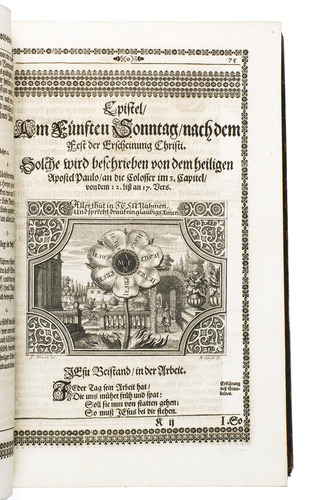 (o)
75
Epistel/
Am Fünften Sonntag/nach dem
Fest der Erscheinung Christi.
Solche wird beschrieben von dem heiligen
Apostel Paulo/an die Colosser im 3. Capitel/
von dem 12. biß an 17. Vers.
Alles thut in JESU Nahmen,
Und sprecht drauf ein glaubigs Amen.
JEsu Beistand/in der Arbeit.
JEder Tag sein Arbeit hat/
Die uns mühet früh und spat:
Soll sie nun von statten gehen;
So muß JEsus bei dir stehen.
Erklärung
deß Sinn-
bildes.
K ij
I. So